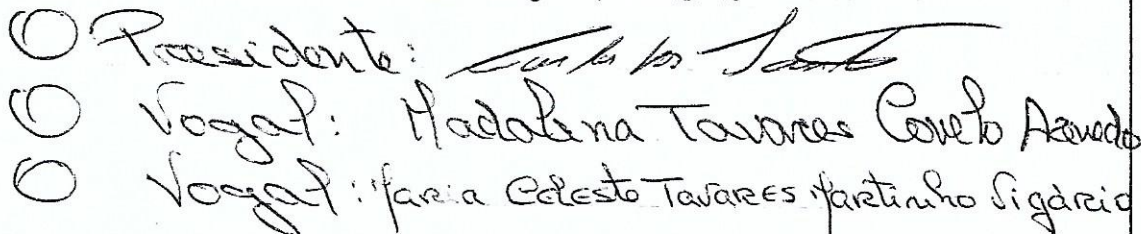 O Presidente:
O Vogal: Madalena Tavares Couto Azevedo
O Vogal: Maria Celeste Tavares Martinho Vigário